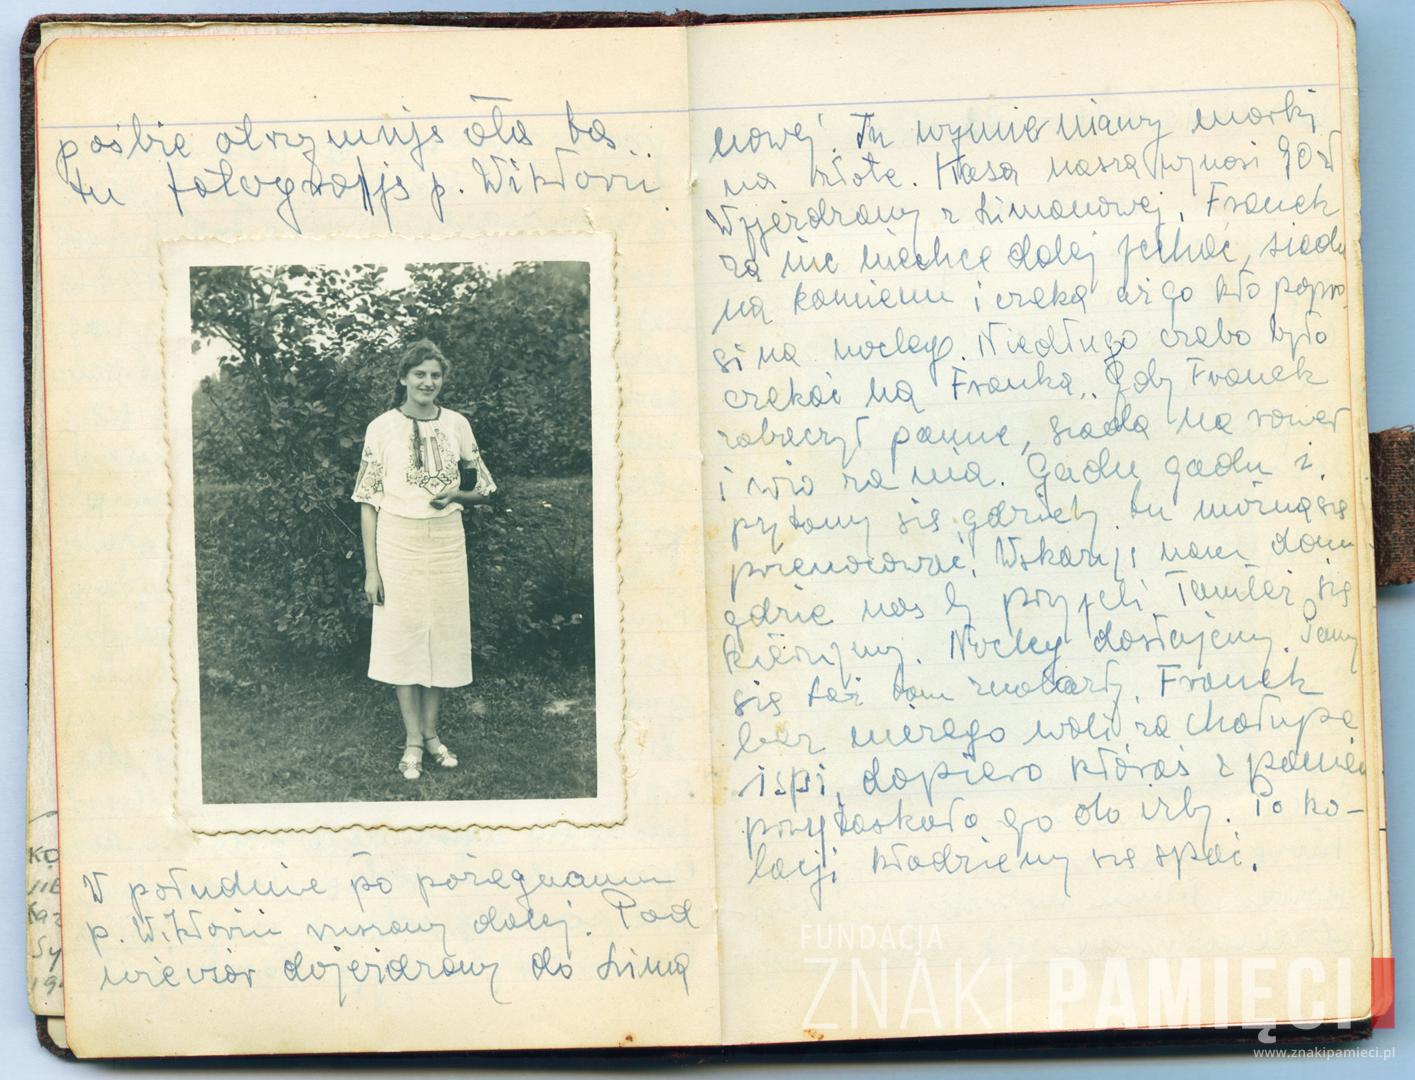 prośbie otrzymuje
tu fotografję p. Wiktorii
W południe po pożegnaniu
p. Wiktorii ruszamy dalej. Pod
wieczór dojeżdżamy do Lima
nowej. Tu wymieniamy marki
na złote. Kasa nasza wynosi 90 zł
Wyjeżdżamy z Limanowej. Franek
za nic niechce dalej jechać, siada
na kamieniu i czeka aż go kto popro-
si na nocleg. Niedługo trzeba było
czekać na Franka. Gdy Franek
zobaczył pannę, siada na rower
i wio za nią. Gadu gadu i
pytamy się, gdzieby tu można się
przenocować. Wskazuje nam dom
gdzie nas by przyjęli. Tamtej się
kierujemy. Nocleg dostajemy. Panny
się też tam znalazły. Franek
bez niczego wali za chałupę
i śpi, dopiero któraś z panien
przytaskała go do izby. Po ko-
lacji kładziemy się spać.
KO
Sy
FUNDACJA
ZNAKI PAMIĘCI
www.znakipamieci.pl